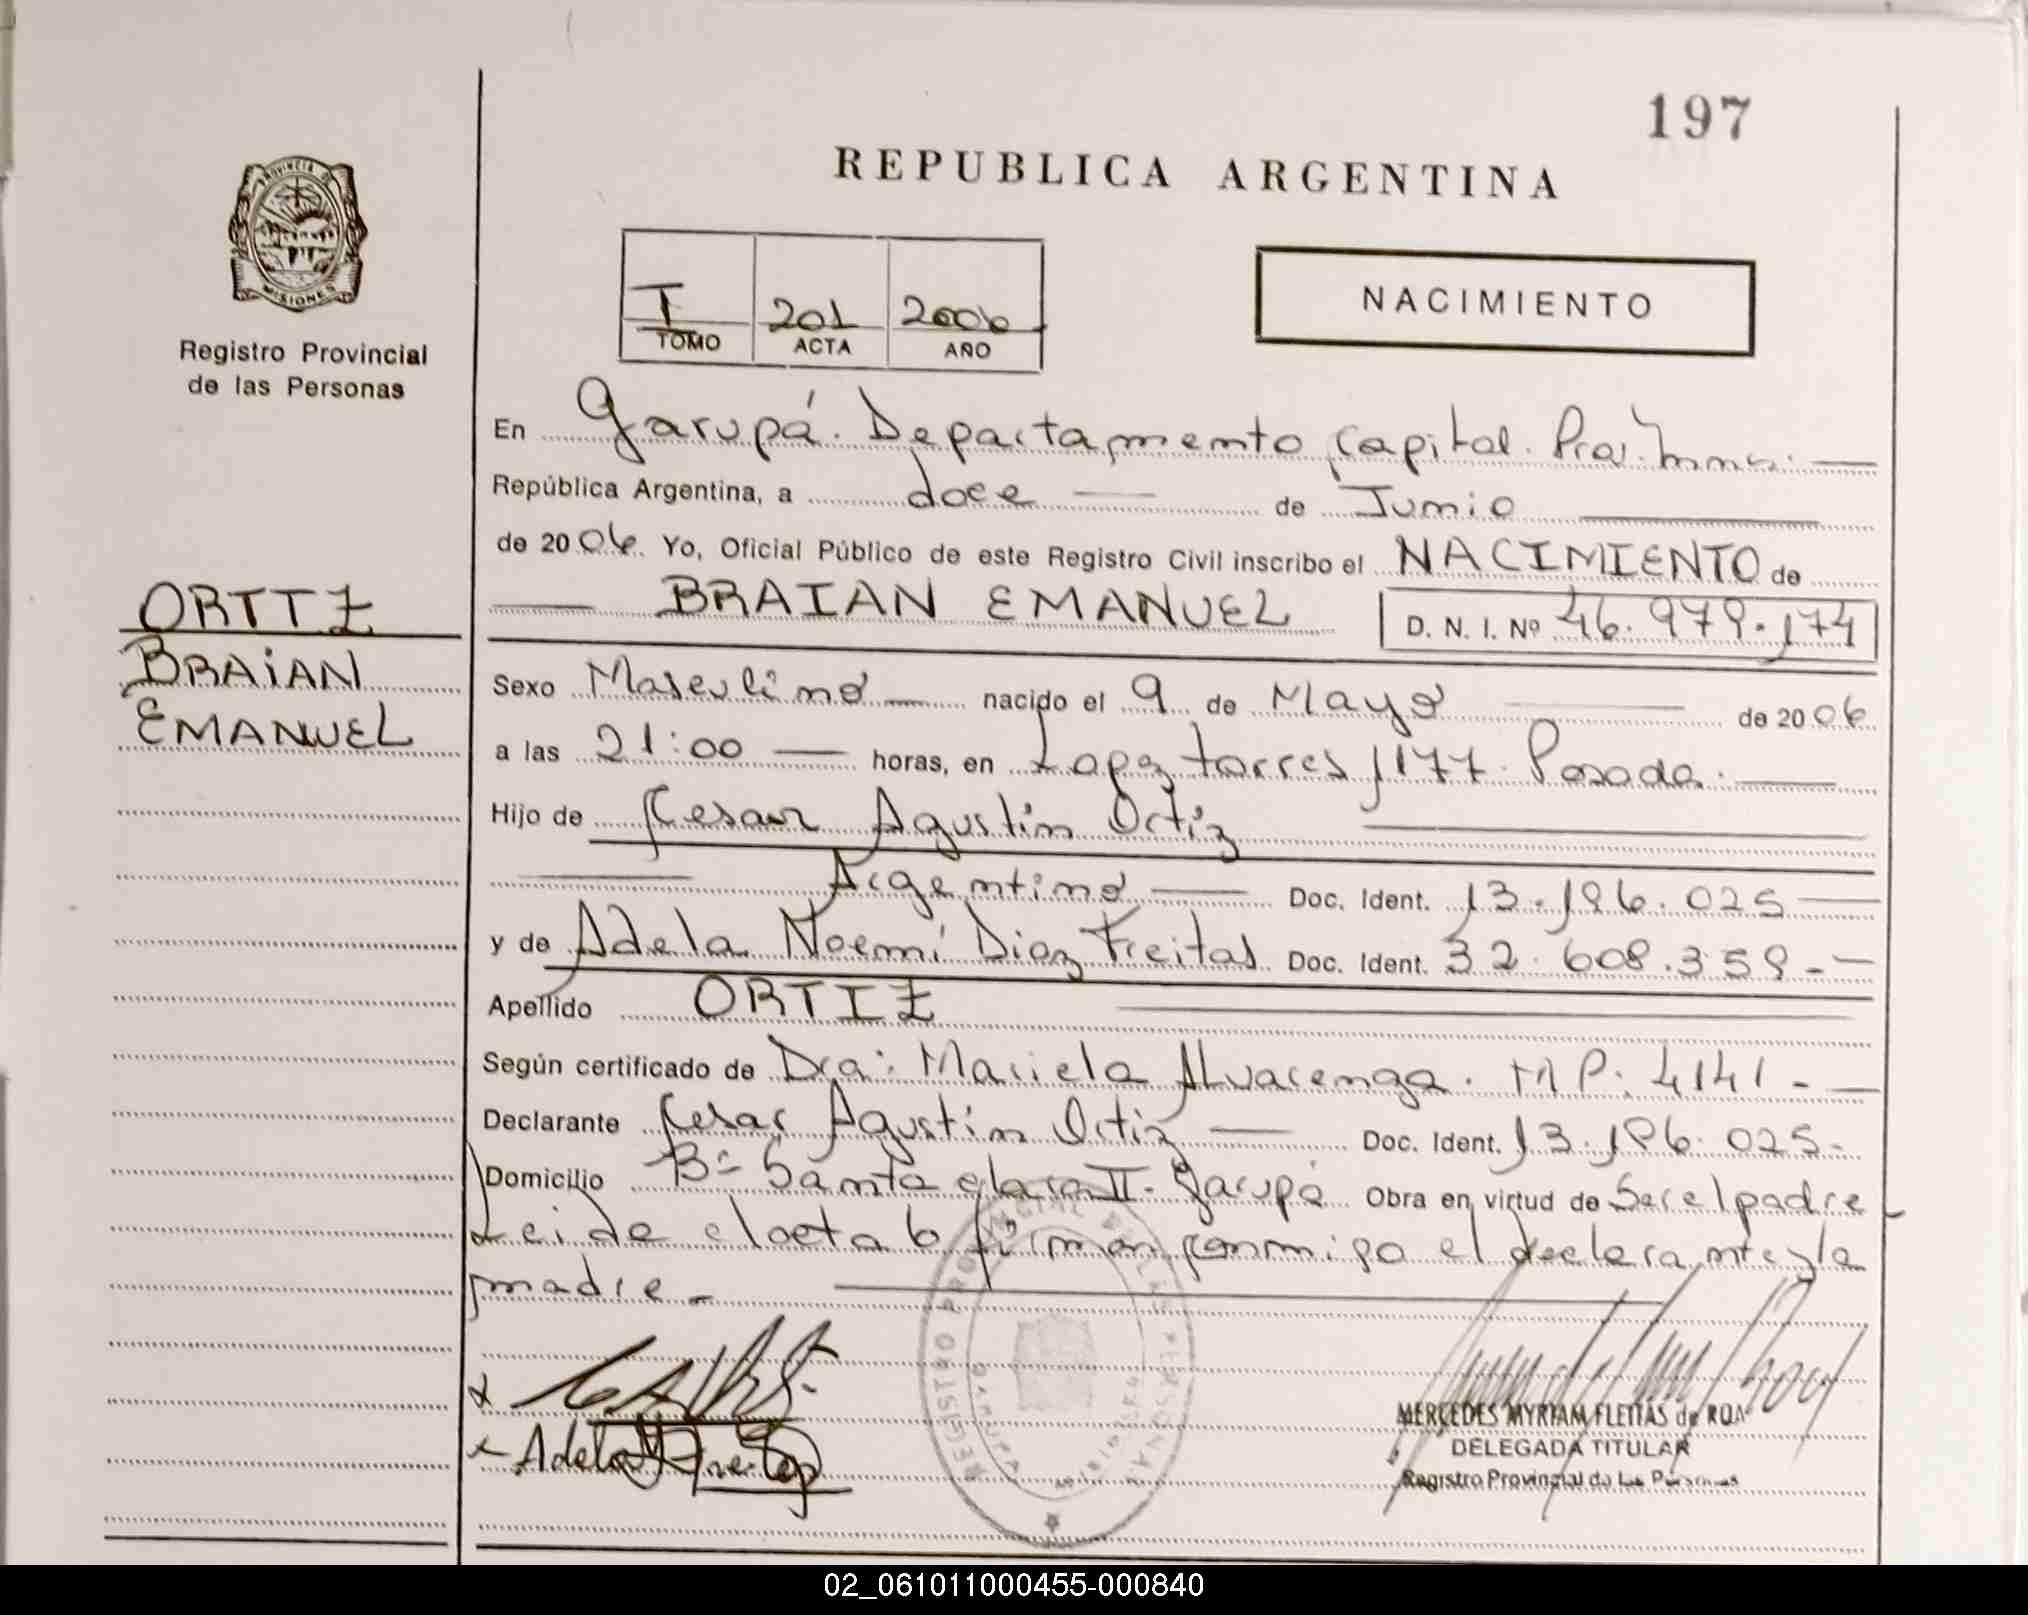 197
REPUBLICA ARGENTINA
PROVINCIA DE
MISIONES
Registro Provincial
de las Personas
T 201 2006
TOMO ACTA AÑO
NACIMIENTO
En Garupá. Departamento Capital. Prov.
República Argentina, a doce de Junio
de 2006. Yo, Oficial Público de este Registro Civil inscribo el NACIMIENTO de
BRAIAN EMANUEL D. N. I. Nº 46.979.174
ORTIZ
BRAIAN
EMANUEL
Sexo Masculino nacido el 9 de Mayo de 2006
a las 21:00 horas, en Lopez torres 1177. Posadas.
Hijo de Cesar Agustín Ortiz
Argentino Doc. Ident. 13.196.025
y de Adela Noemí Diaz Freitas Doc. Ident. 32.608.359.-
Apellido ORTIZ
Según certificado de Dra: Mariela Alvarenga. M.P. 4141.-
Declarante Cesar Agustín Ortiz Doc. Ident. 13.196.025.
Domicilio Bº Santa clara II. Garupá Obra en virtud de Ser el padre
Leida el acta firman conmigo el declarante y la
madre.-
Adela
MERCEDES MYRIAM FLEITAS de ROA
DELEGADA TITULAR
Registro Provincial de Las Personas
REGISTRO PROVINCIAL DE LAS PERSONAS
02_061011000455-000840